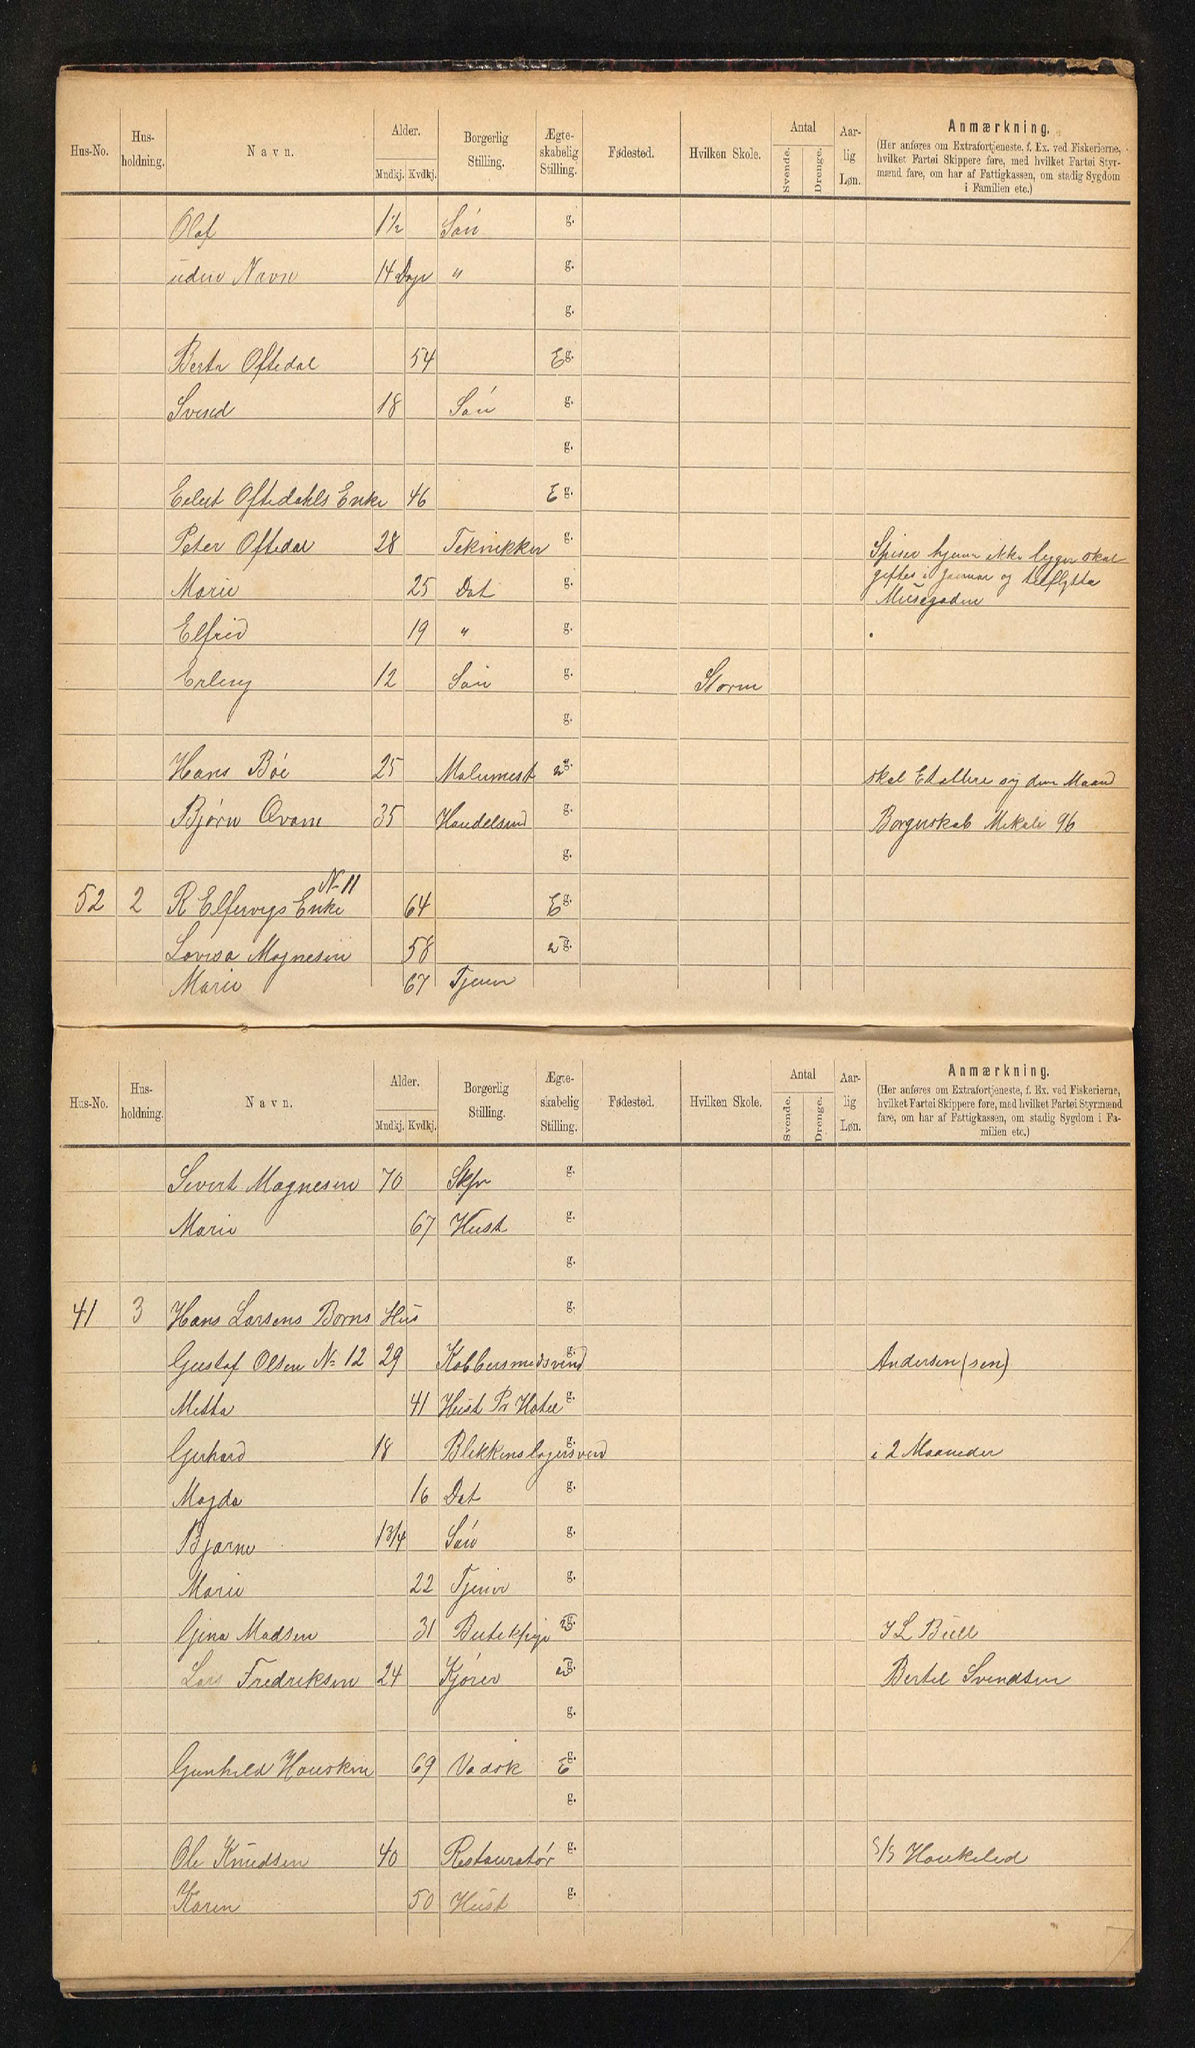 Hus-No. Hus-holdning. Navn. Alder. Mndkj. Kvdkj. Borgerlig Stilling. Ægte-skabelig Stilling. Fødested. Hvilken Skole. Antal Svende. Drenge. Aar-lig Løn. Anmærkning.
(Her anføres om Extrafortjeneste, f. Ex. ved Fiskerierne,
hvilket Partøi Skippere føre, med hvilket Partøi Styr-
mænd fare, om har af Fattigkassen, om stadig Sygdom
i Familien etc.)
Olaf 1½ Sön g.
uden Navn 14 Dage " g.
g.
Berta Oftedal 54 E g.
Svend 18 Sön g.
g.
Oftedahls Enke 46 E g.
Peter Oftedal 28 Teknikker g. Spiser hjeme ikke ligger skal
giftes i Januar og tilflytte
Musegaden
Marie 25 Dat g.
Elfrid 19 " g.
Erling 12 Sön g. Storm
g.
Hans Böe 25 Malumest g. skal Etablere sig denne Maaned
Bjørn Qvam 35 Handelsmd g. Borgerskab Mikali 96
g.
52 2 R Elfervigs Enke N- 11 64 E g.
Lovisa Magnesen 58 g.
Marie 67 Tjener
Hus-No. Hus-holdning. Navn. Alder. Mndkj. Kvdkj. Borgerlig Stilling. Ægte-skabelig Stilling. Fødested. Hvilken Skole. Antal Svende. Drenge. Aar-lig Løn. Anmærkning.
(Her anføres om Extrafortjeneste, f. Ex. ved Fiskerierne,
hvilket Partøi Skippere føre, med hvilket Partøi Styrmænd
fare, om har af Fattigkassen, om stadig Sygdom i Fa-
milien etc.)
Sivert Magnesen 70 Skpr g.
Marie 67 Hust g.
g.
41 3 Hans Larsens Børns Hus g.
Gustaf Olsen N- 12 29 Kobbersmedsvend g. Andersen (sen)
Metta 41 Hust Pr Hotel g.
Gerhard 18 Blikkenslagersvend g. i 2 Maaneder
Magda 16 Dat g.
Bjarne 13/4 Sön g.
Marie 22 Tjener g.
Gina Madsen 31 Butikpige g. I L Büll
Lars Fredriksen 24 Kjører g. Bertel Svendsen
g.
Gunhild Hausken 69 Vadsk E g.
g.
Ole Knudsen 40 Restauratör g. S/S Haukelid
Karen 50 Hust g.